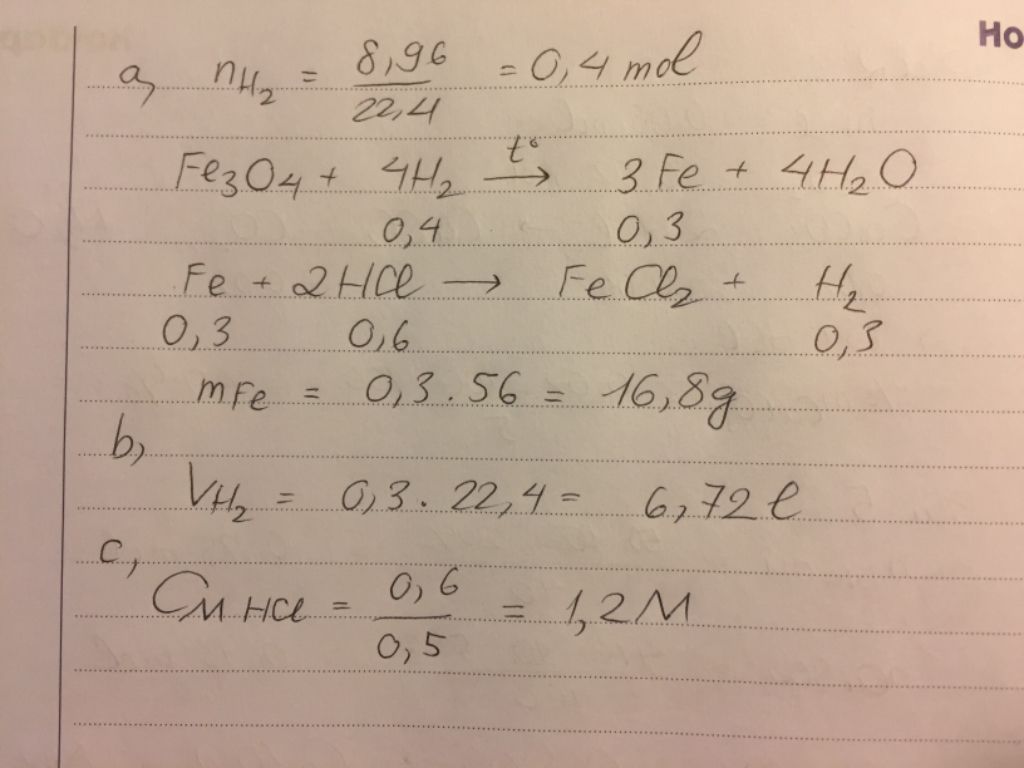 Но
a, nH₂ = 8,96 / 22,4 = 0,4 mol
Fe₃O₄ + 4H₂ t° → 3Fe + 4H₂O
0,4 0,3
Fe + 2HCl → FeCl₂ + H₂
0,3 0,6 0,3
mFe = 0,3 . 56 = 16,8g
b,
VH₂ = 0,3 . 22,4 = 6,72 l
c,
CM HCl = 0,6 / 0,5 = 1,2M